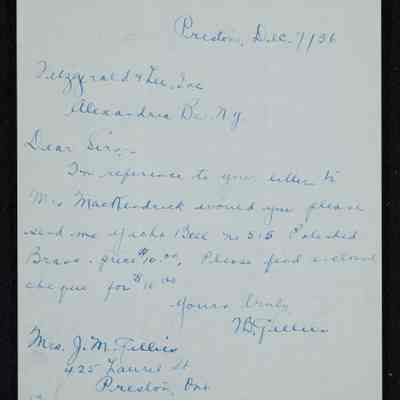 Preston, Dec. 7/36
Fitzgerald & Lee, Inc
Alexandria Bay N.Y
Dear Sirs,-
In reference to your letter to
Mrs MacKendrick would you please
send me Yacht Bell no 515 Polished
Brass - price $10.00, Please find enclosed
cheque for $10.00
Yours truly
Mrs. J. M. Gillies
425 Laurel St
Preston, Ont